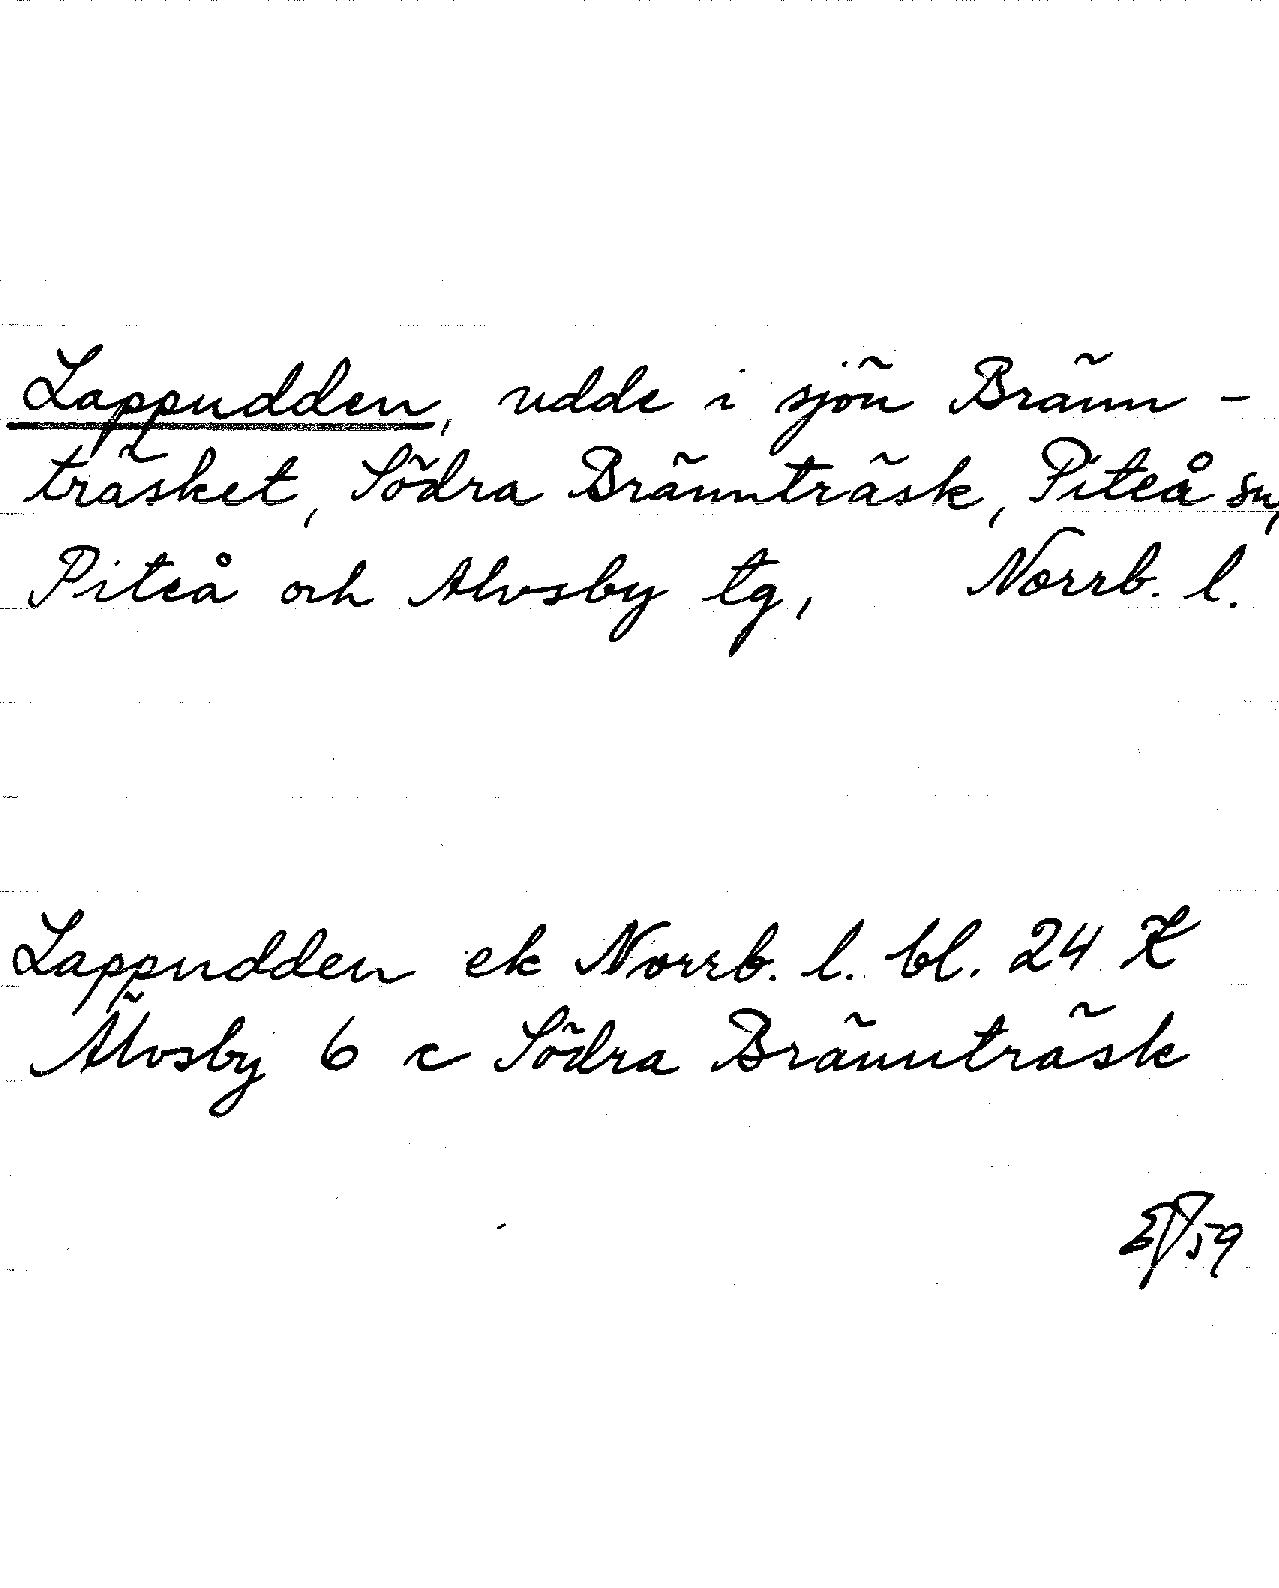 Lappudden, udde i sjön Bränn-
träsket, Södra Brännträsk, Piteå sn,
Piteå och Älvsby tg, Norrb. l.
Lappudden ek Norrb. l. bl. 24 K
Älvsby 6 c Södra Brännträsk
59